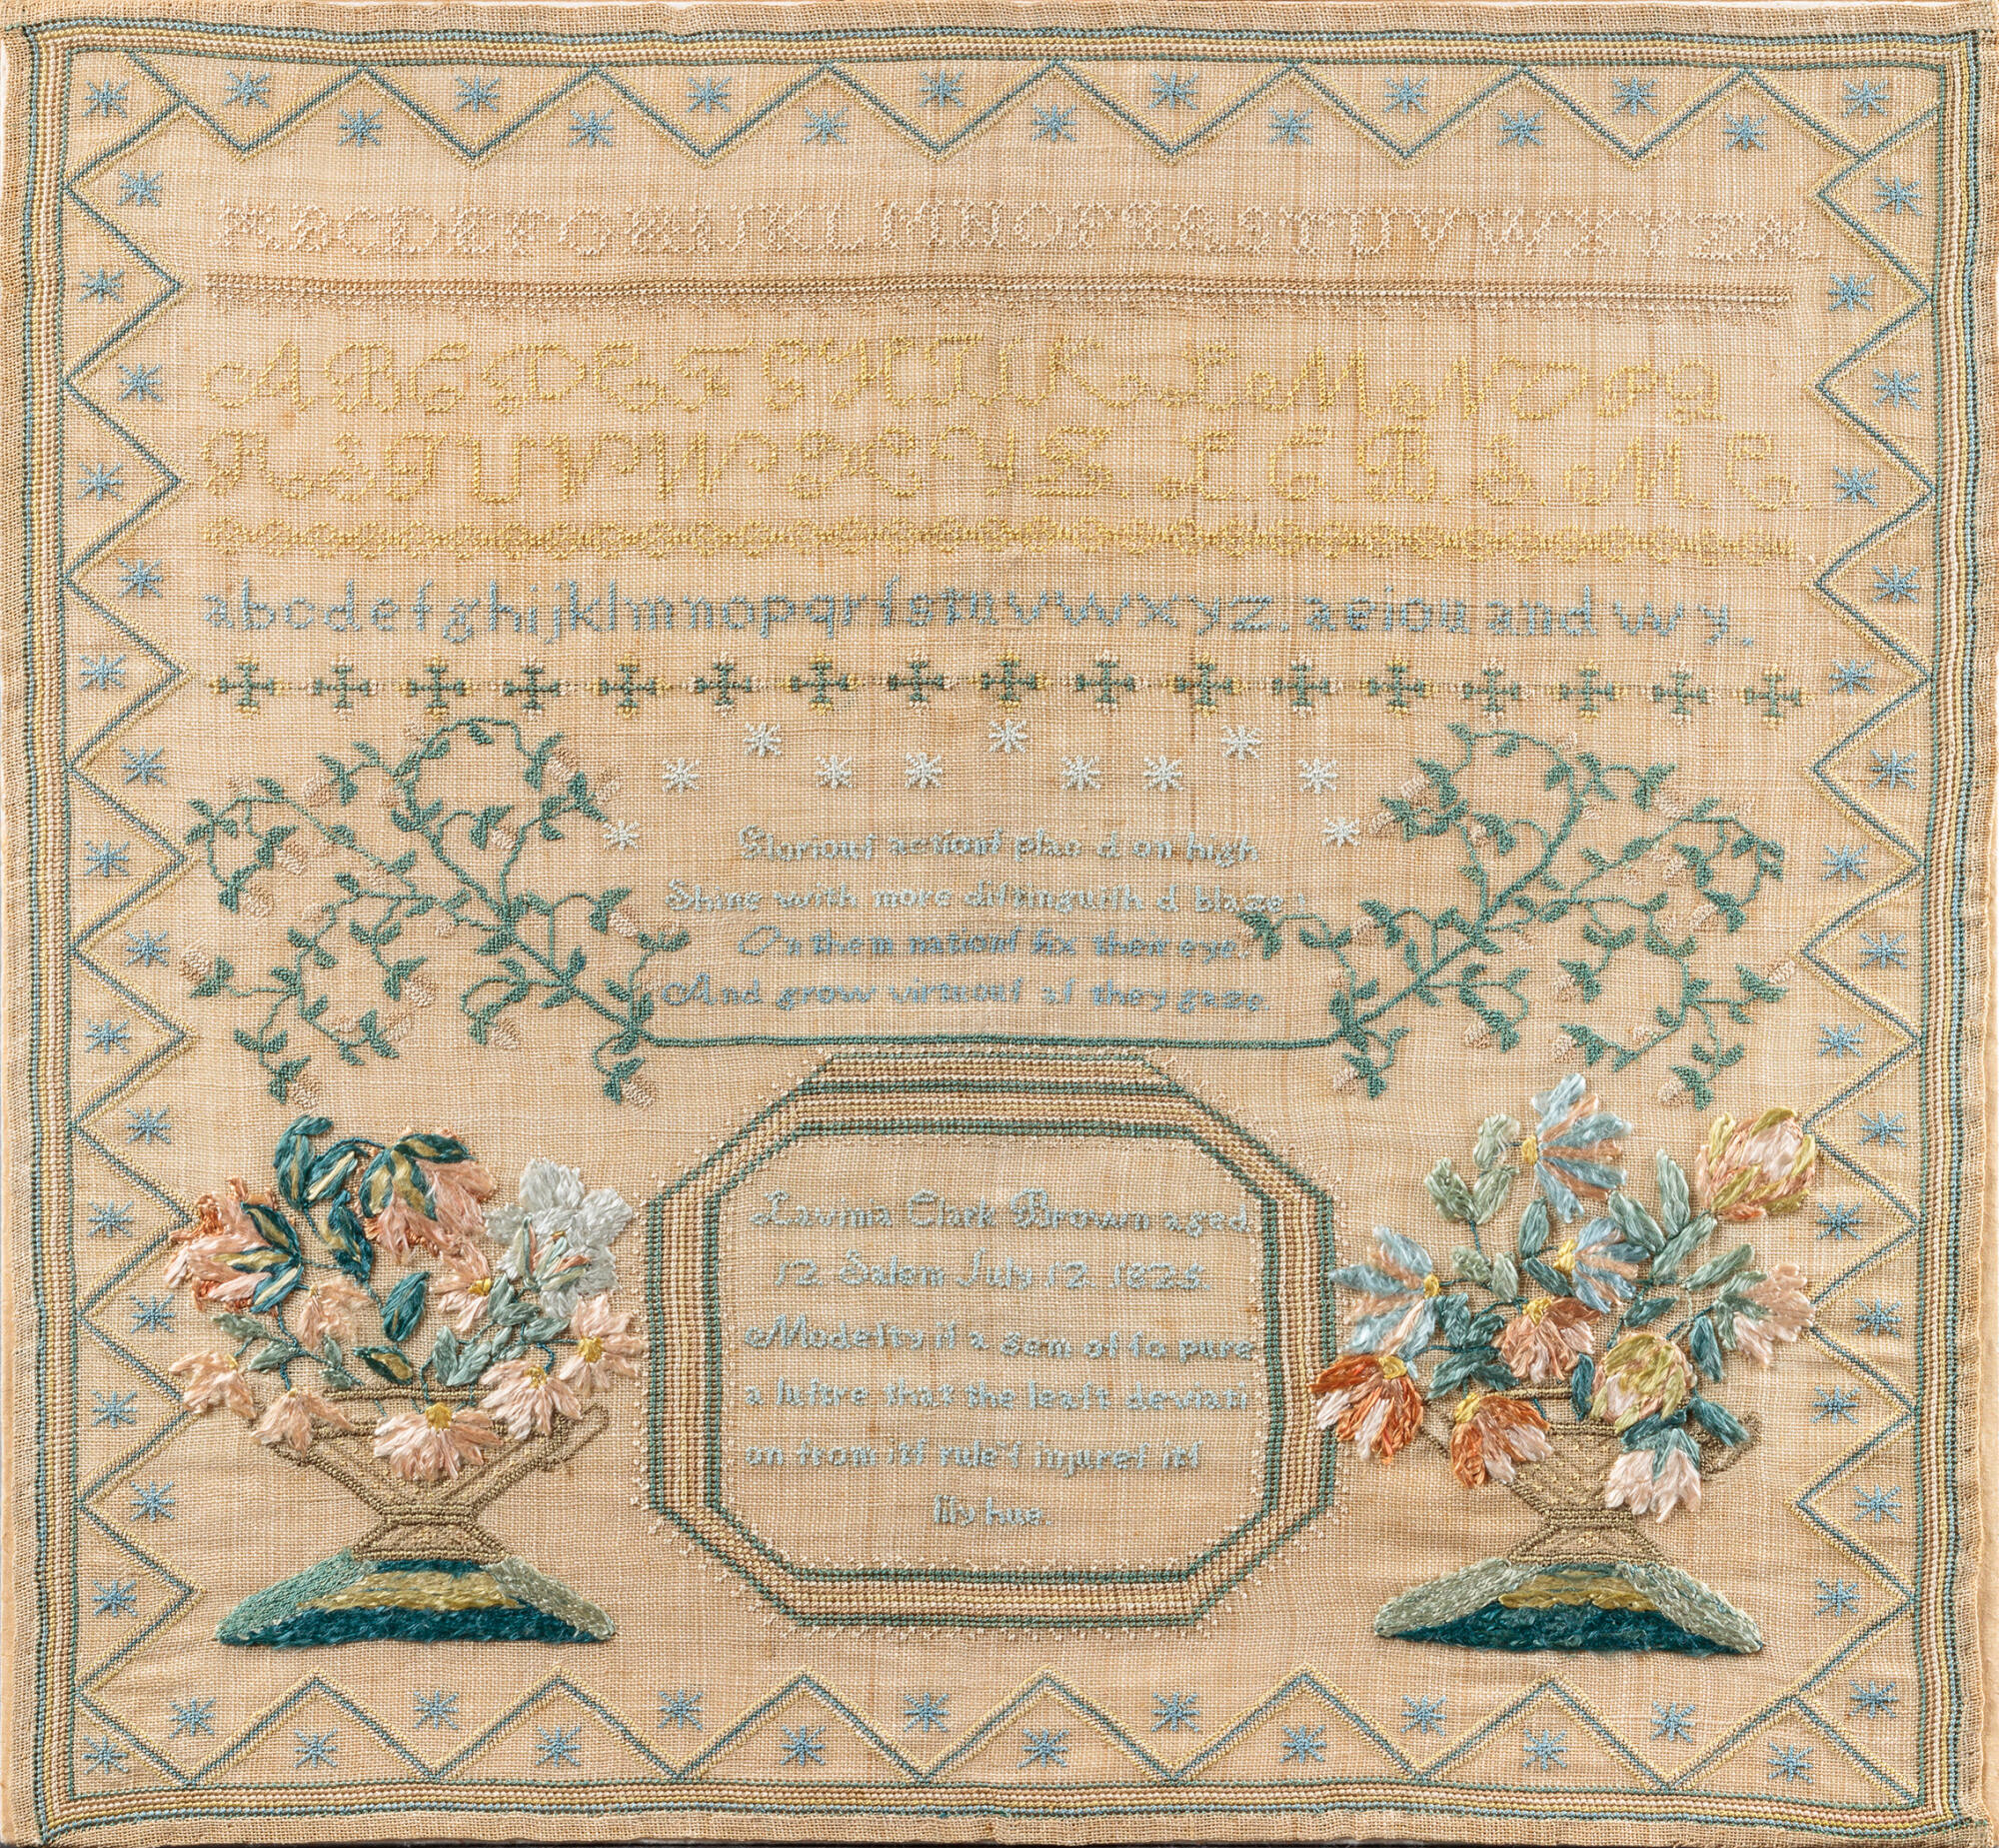 ABCDEFGHIJKLMNOPQRSTUVWXYZ&
ABCDEFGHIJKLMNOPQ
RSTUVWXYZ. L. C. B. S. M. C.
abcdefghijklmnopqrſstuvwxyz. aeiou and w y.
Gloriouſ actionſ plac d on high
Shine with more diſtinguiſh d blaze
On them nationſ fix their eye.
And grow virtuouſ aſ they gaze.
Lavinia Clark Brown aged
12. Salem July 12. 1825.
Modeſty iſ a gem of ſo pure
a luſtre that the leaſt deviati
on from itſ rule'ſ injureſ itſ
lily hue.